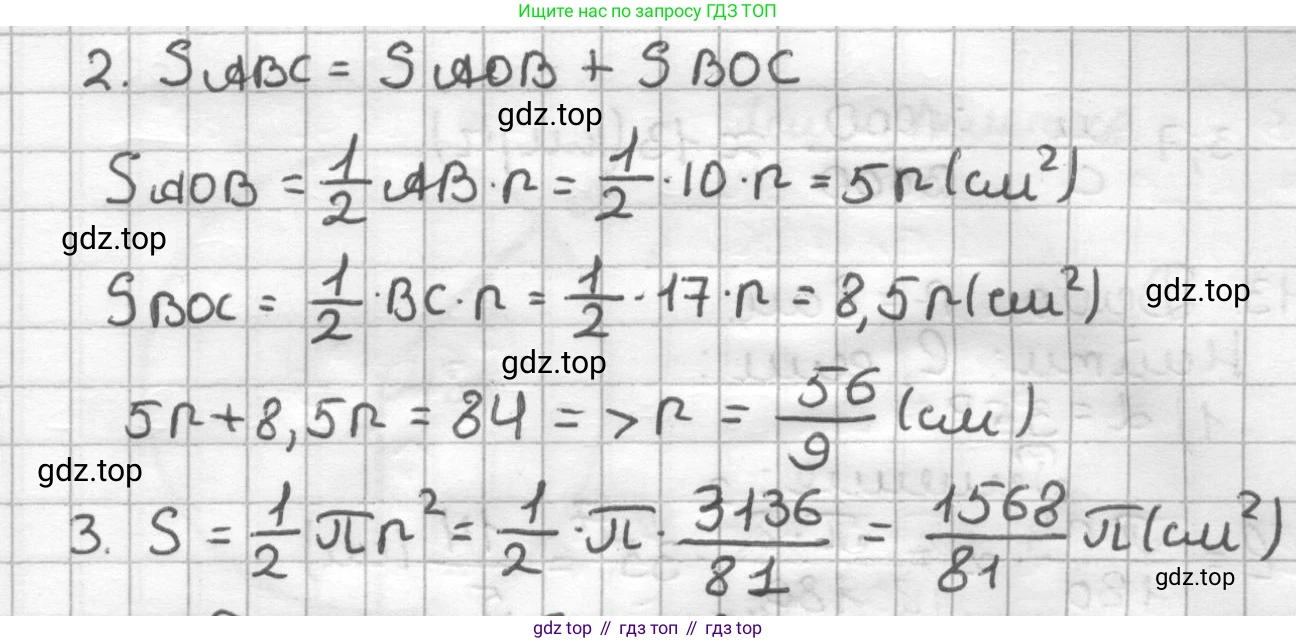 Ищите нас по запросу ГДЗ ТОП
2. SABC = SAOB + SBOC
gdz.top
SAOB = 1/2 AB · r = 1/2 · 10 · r = 5r (см²)
gdz.top
SBOC = 1/2 · BC · r = 1/2 · 17 · r = 8,5r (см²)
gdz.top
gdz.top
5r + 8,5r = 84 => r = 56/9 (см)
gdz.top
3. S = 1/2 πr² = 1/2 · π · 3136/81 = 1568/81 π (см²)
gdz.top
gdz top // гдз топ // gdz top